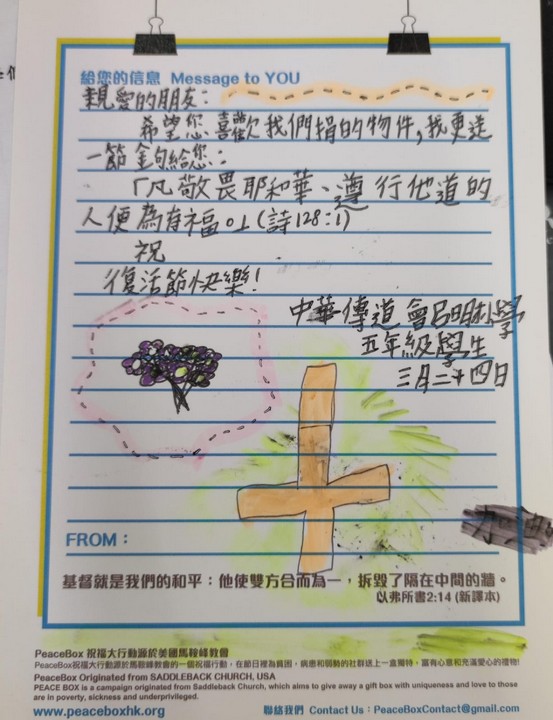 給您的信息 Message to YOU
親愛的朋友：
希望您喜歡我們捐的物件，我更送
一節金句給您：
「凡敬畏耶和華、遵行他道的
人便為有福。」(詩128:1)
祝
復活節快樂！
中華傳道會呂明才小學
五年級學生
三月二十四日
FROM：
基督就是我們的和平：他使雙方合而為一，拆毀了隔在中間的牆。
以弗所書2:14 (新譯本)
PeaceBox 祝福大行動源於美國馬鞍峰教會
PeaceBox祝福大行動源於馬鞍峰教會的一個祝福行動，在節日裡為貧困，病患和弱勢的社群送上一直獨特，富有心意和充滿愛心的禮物!
PeaceBox Originated from SADDLEBACK CHURCH, USA
PEACE BOX is a campaign originated from Saddleback Church, which aims to give away a gift box with uniqueness and love to those
are in poverty, sickness and underprivileged.
www.peaceboxhk.org 聯絡我們 Contact Us : PeaceBoxContact@gmail.com